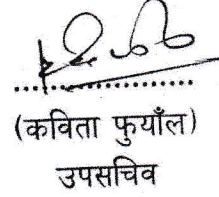 (कविता फुयाँल)
उपसचिव